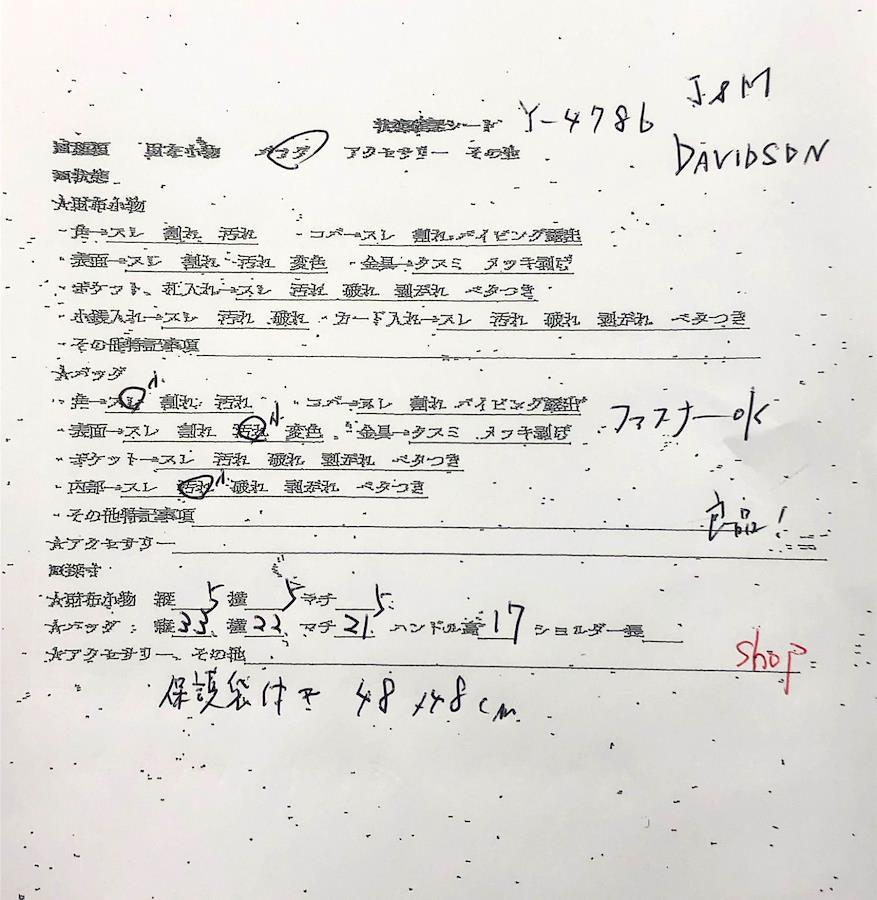 J&M
状態確認シート Y-4786
DAVIDSON
財布小物 バッグ アクセサリー その他
■状態
☆財布小物
・角→スレ 割れ 汚れ ・コバ→スレ 割れ パイピング露出
・表面→スレ 割れ 汚れ 変色 ・金具→クスミ メッキ剥げ
・ポケット、札入れ→スレ 汚れ 破れ 剥がれ ベタつき
・小銭入れ→スレ 汚れ 破れ ・カード入れ→スレ 汚れ 破れ 剥がれ ベタつき
・その他特記事項
☆バッグ
・角→スレ 小 割れ 汚れ ・コバ→スレ 割れ パイピング露出
ファスナーOK
・表面→スレ 割れ 汚れ 小 変色 ・金具→クスミ メッキ剥げ
・ポケット→スレ 汚れ 破れ 剥がれ ベタつき
・内部→スレ 汚れ 小 破れ 剥がれ ベタつき
・その他特記事項
良品!
☆アクセサリー
■採寸
☆財布小物 縦 5 横 5 マチ 5
☆バッグ: 縦 33 横 22 マチ 21 ハンドル高 17 ショルダー長
☆アクセサリー、その他
shop
保護袋付き 48×48cm